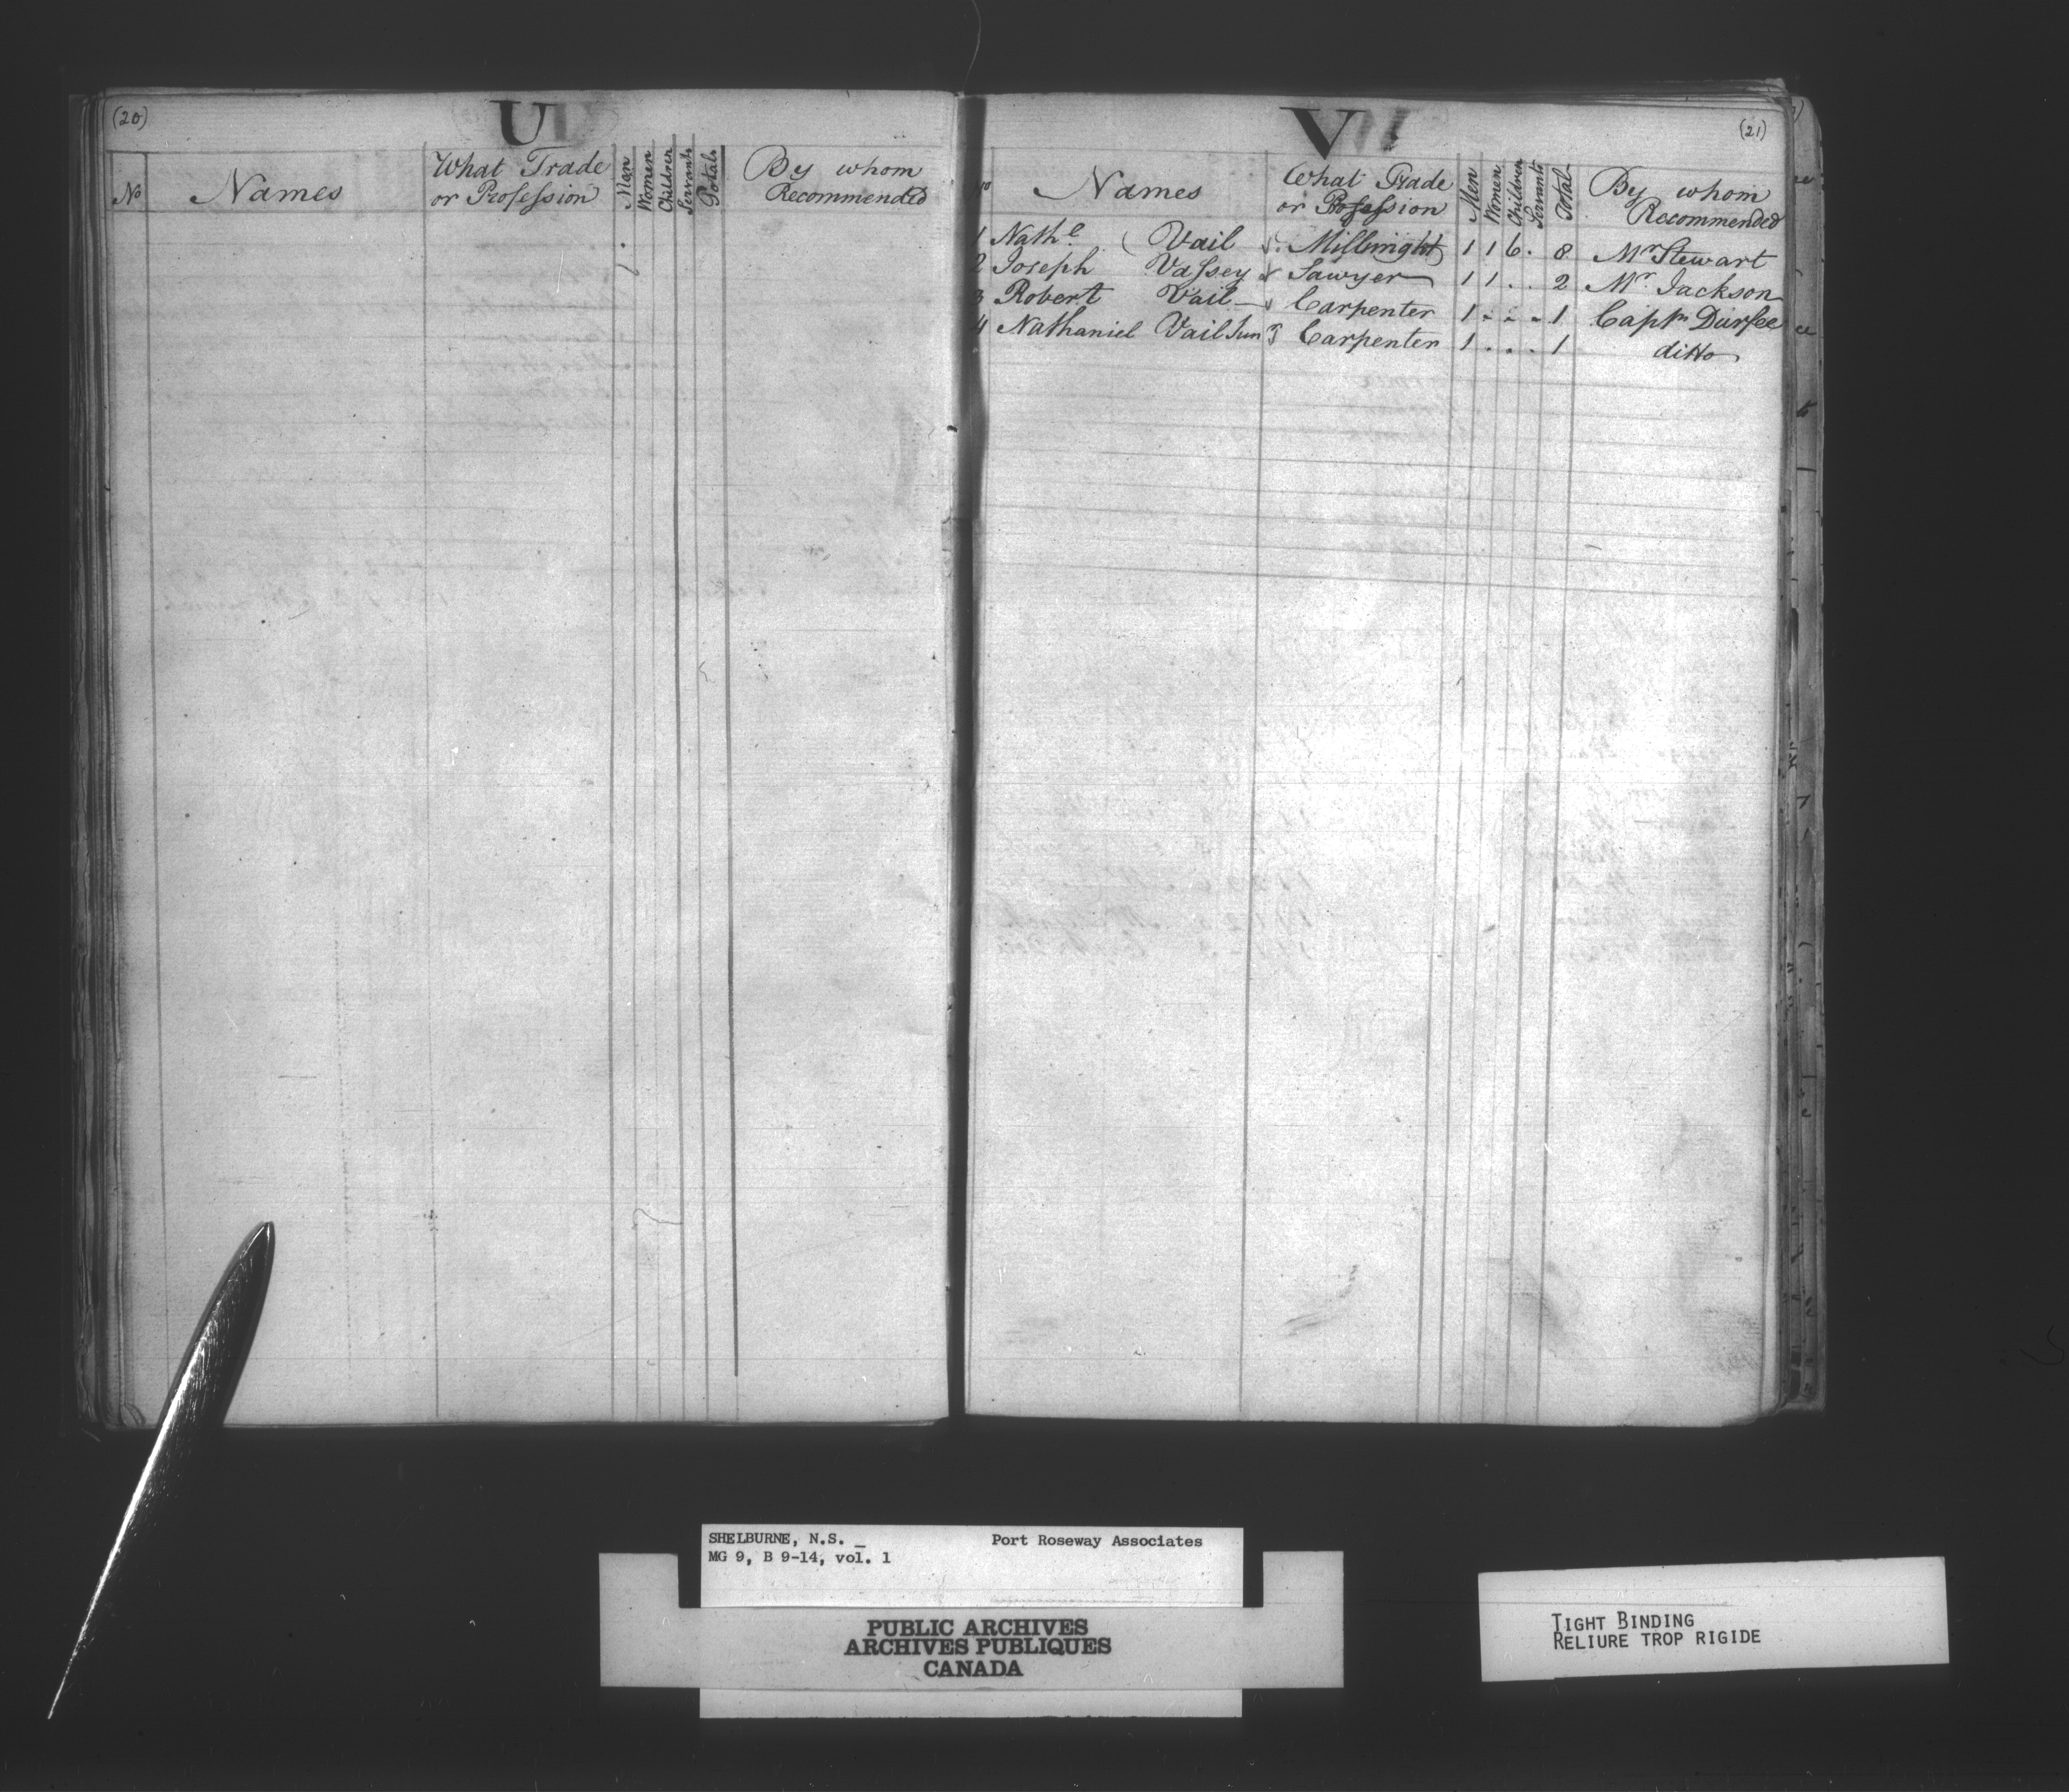 (20)
U
No Names What Trade or Profession Men Women Children Servants Total By whom Recommended
V
(21)
No Names What Trade or Profession Men Women Children Servants Total By whom Recommended
1 Nathl. Vail Millwright 1 1 6 . 8 Mr Stewart
2 Joseph Vassey Sawyer 1 1 . . 2 Mr. Jackson
3 Robert Vail Carpenter 1 . . . 1 Captn Durfee
4 Nathaniel Vail Jun Carpenter 1 . . . 1 ditto
SHELBURNE, N.S. Port Roseway Associates
MG 9, B 9-14, vol. 1
PUBLIC ARCHIVES
ARCHIVES PUBLIQUES
CANADA
TIGHT BINDING
RELIURE TROP RIGIDE